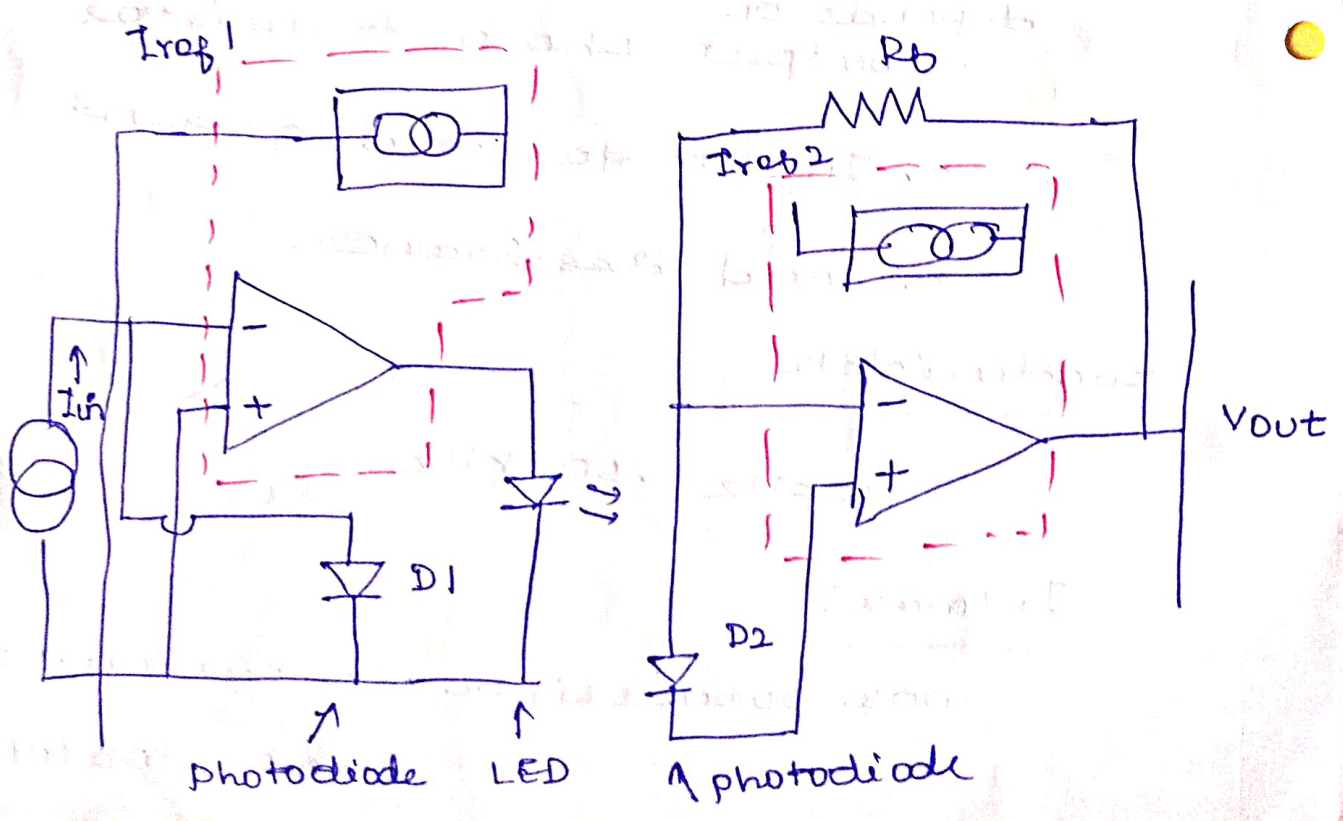 Iref1
Rf
Iref2
−
Iin
+
−
Vout
+
D1
D2
photodiode
LED
photodiode